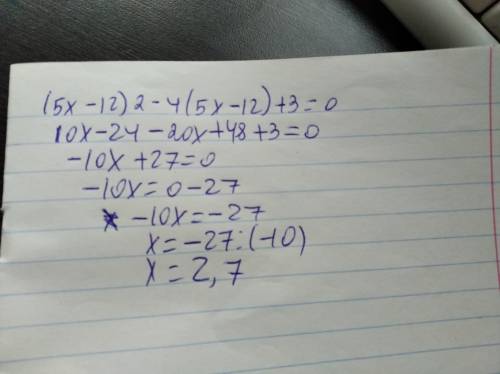 (5x-12)2-4(5x-12)+3=0
10x-24-20x+48+3=0
-10x+27=0
-10x=0-27
-10x=-27
x=-27:(-10)
x=2,7